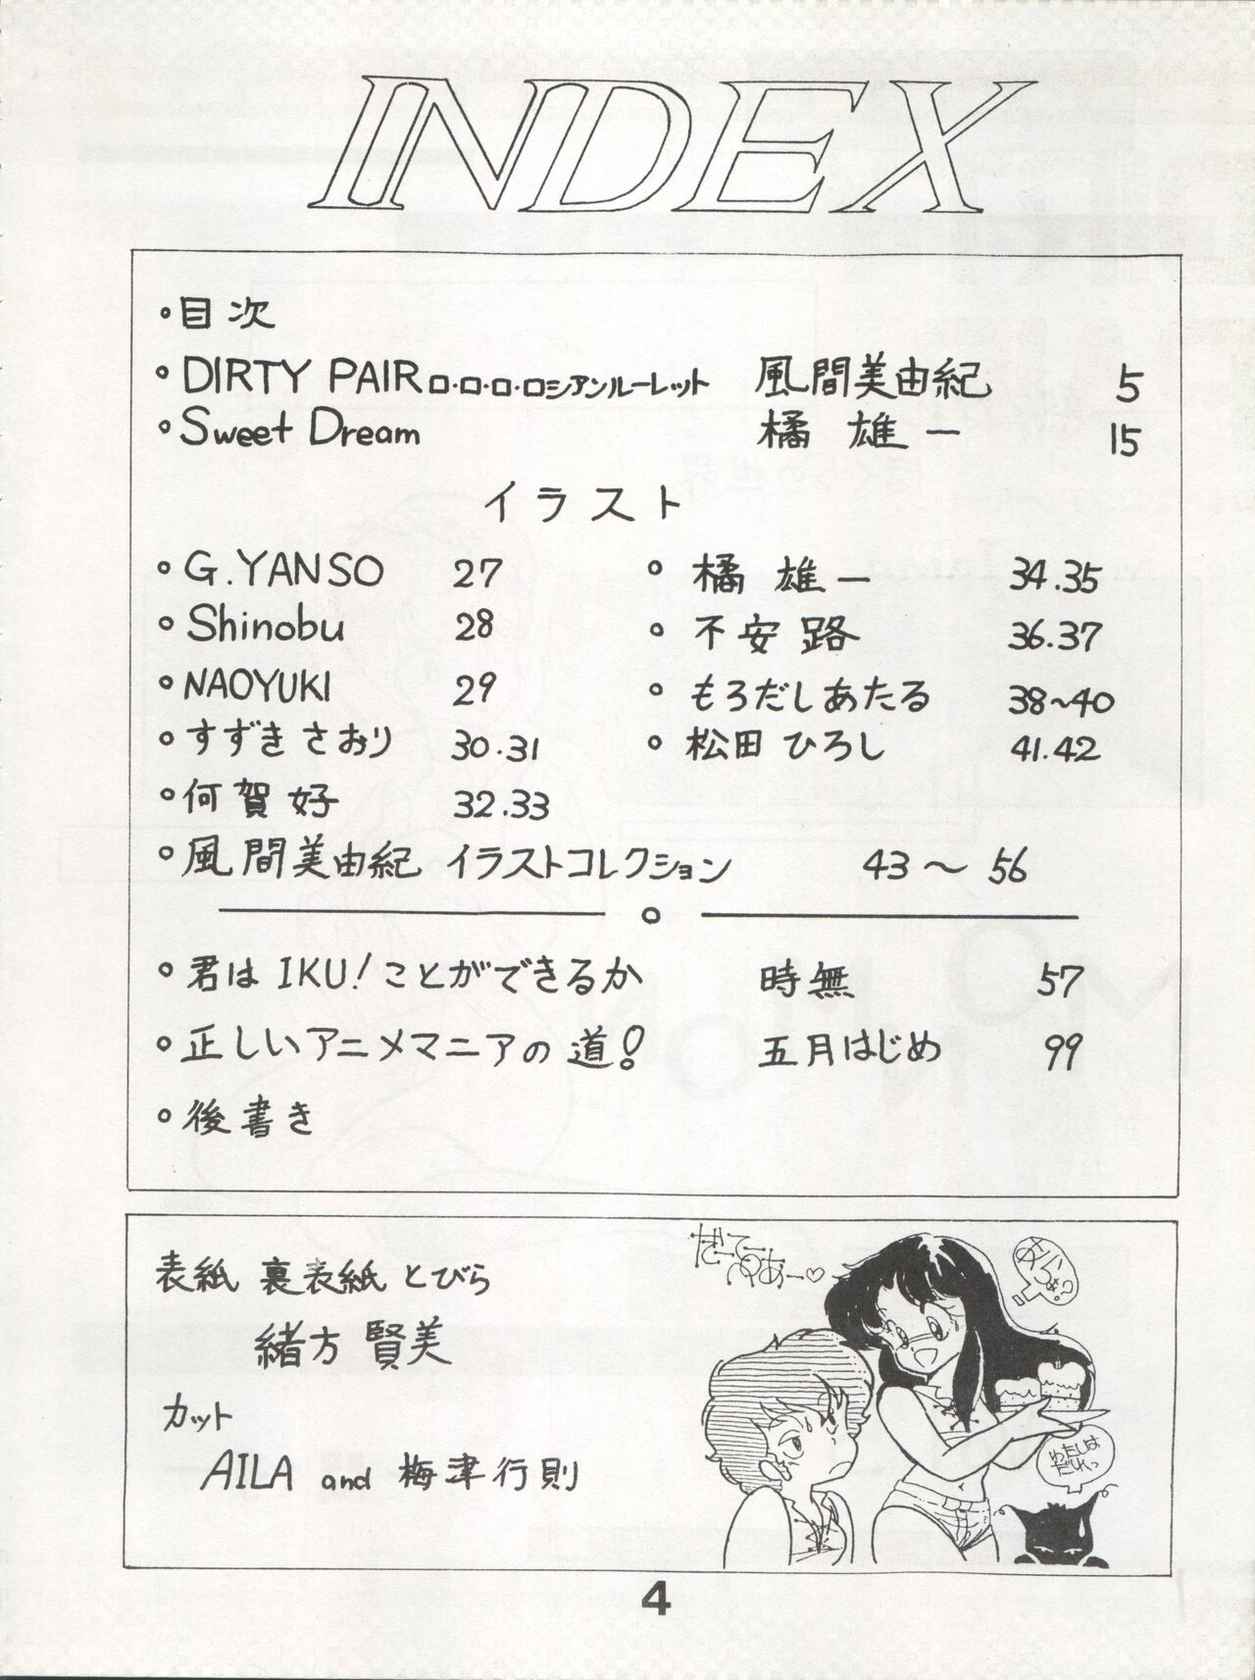 INDEX
○目次
○DIRTY PAIRロ・ロ・ロ・ロシアンルーレット 風間美由紀 5
○Sweet Dream 橘 雄一 15
イラスト
○G.YANSO 27
○Shinobu 28
○NAOYUKI 29
○すずき さおり 30.31
○何賀好 32.33
○橘 雄一 34.35
○不安路 36.37
○もろだしあたる 38~40
○松田 ひろし 41.42
○風間美由紀 イラストコレクション 43~56
○君は IKU!ことができるか 時無 57
○正しいアニメマニアの道! 五月はじめ 99
○後書き
表紙 裏表紙 とびら
緒方 賢美
カット
AILA and 梅津行則
4